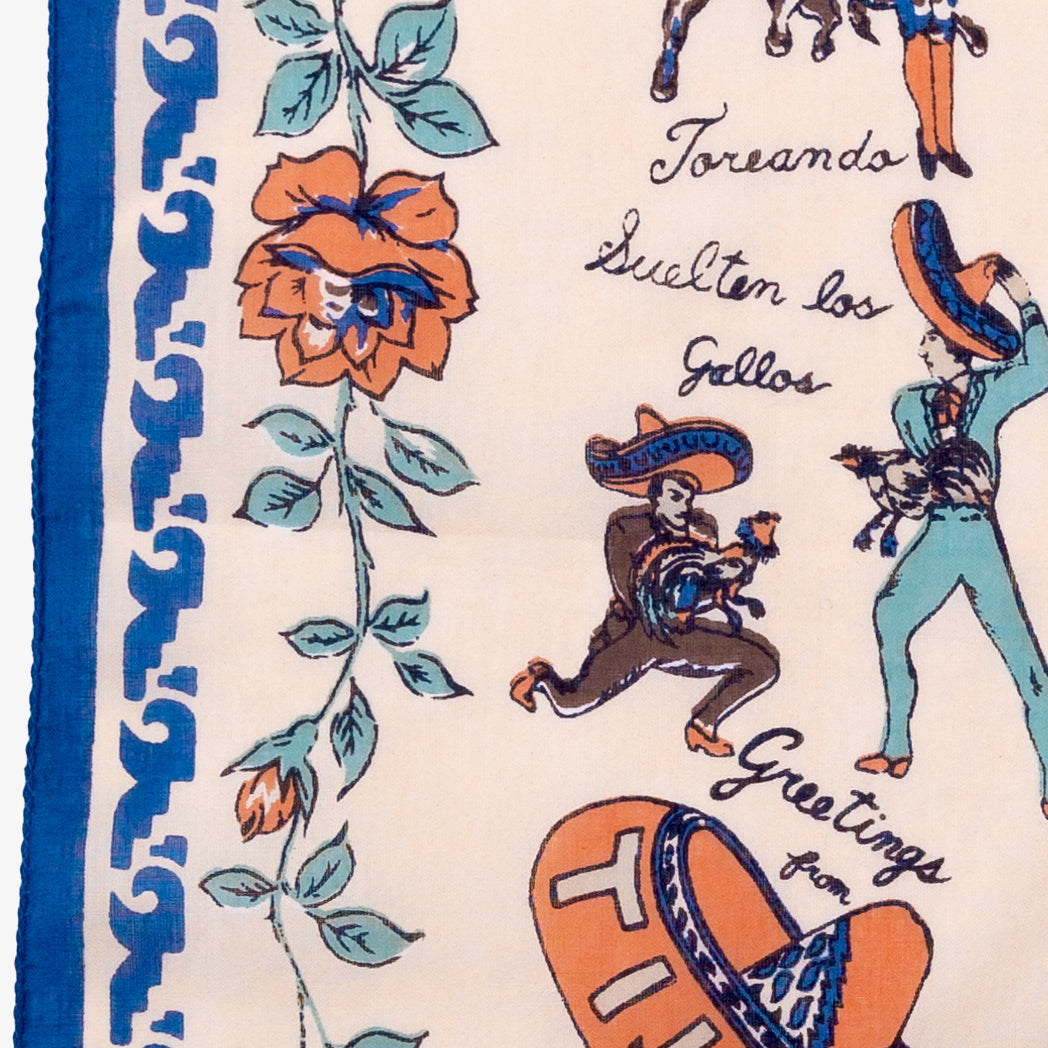 Toreando
Suelten los
Gallos
Greetings
from
TI